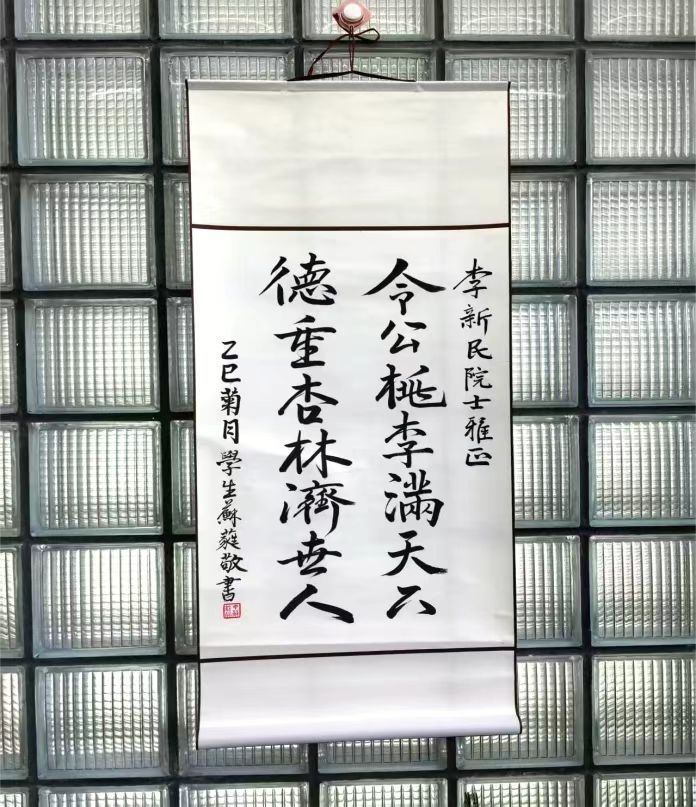 李新民院士雅正
令公桃李滿天下
德重杏林濟世人
乙巳菊月學生蘇蕤敬書